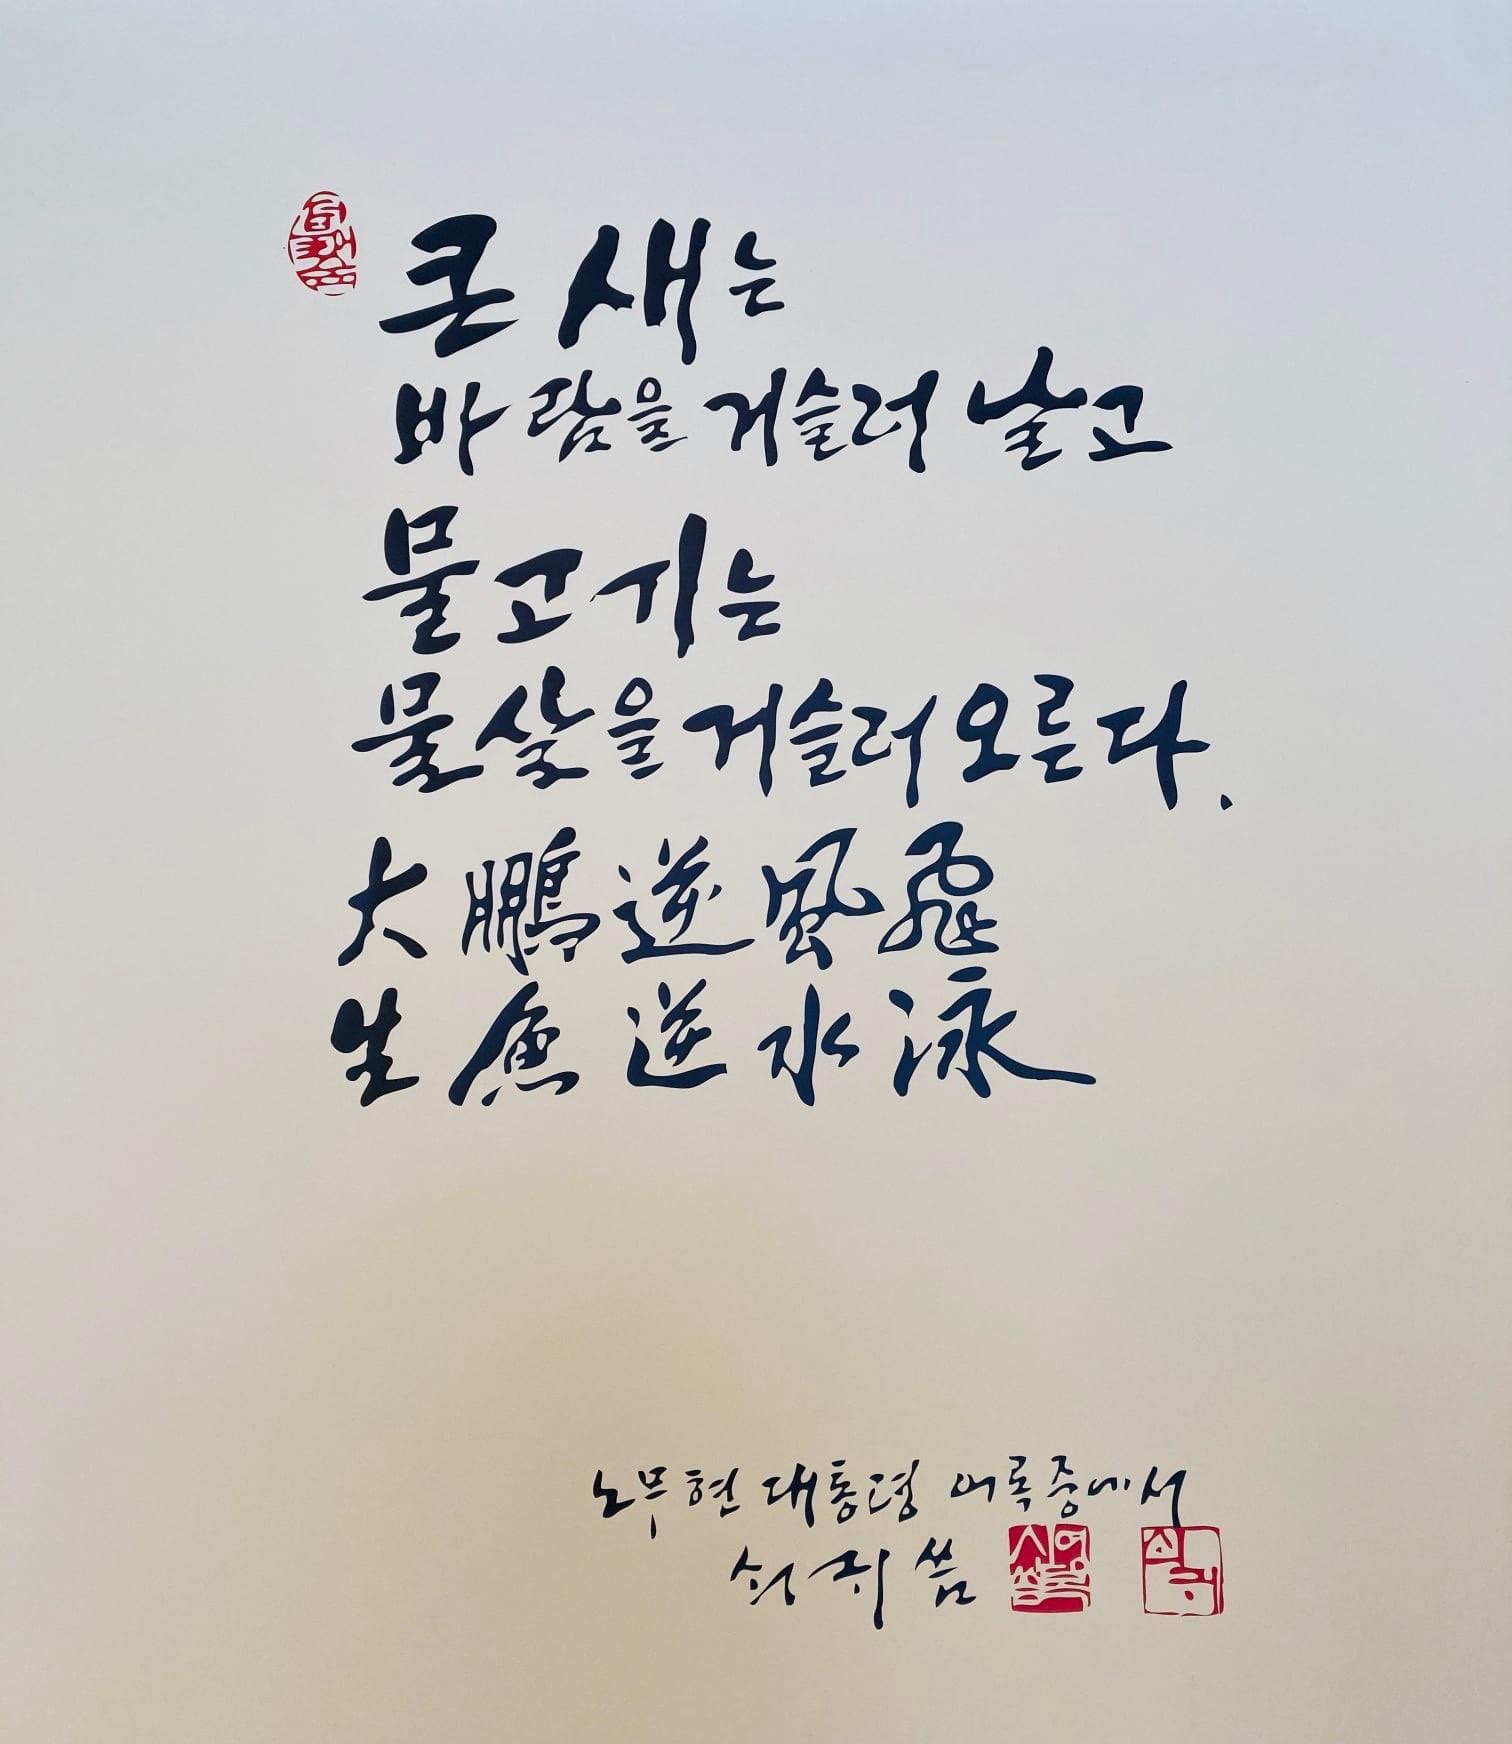 큰 새는
바람을 거슬러 날고
물고기는
물살을 거슬러 오른다.
大鵬逆風飛
生魚逆水泳
노무현 대통령 어록중에서
쓤